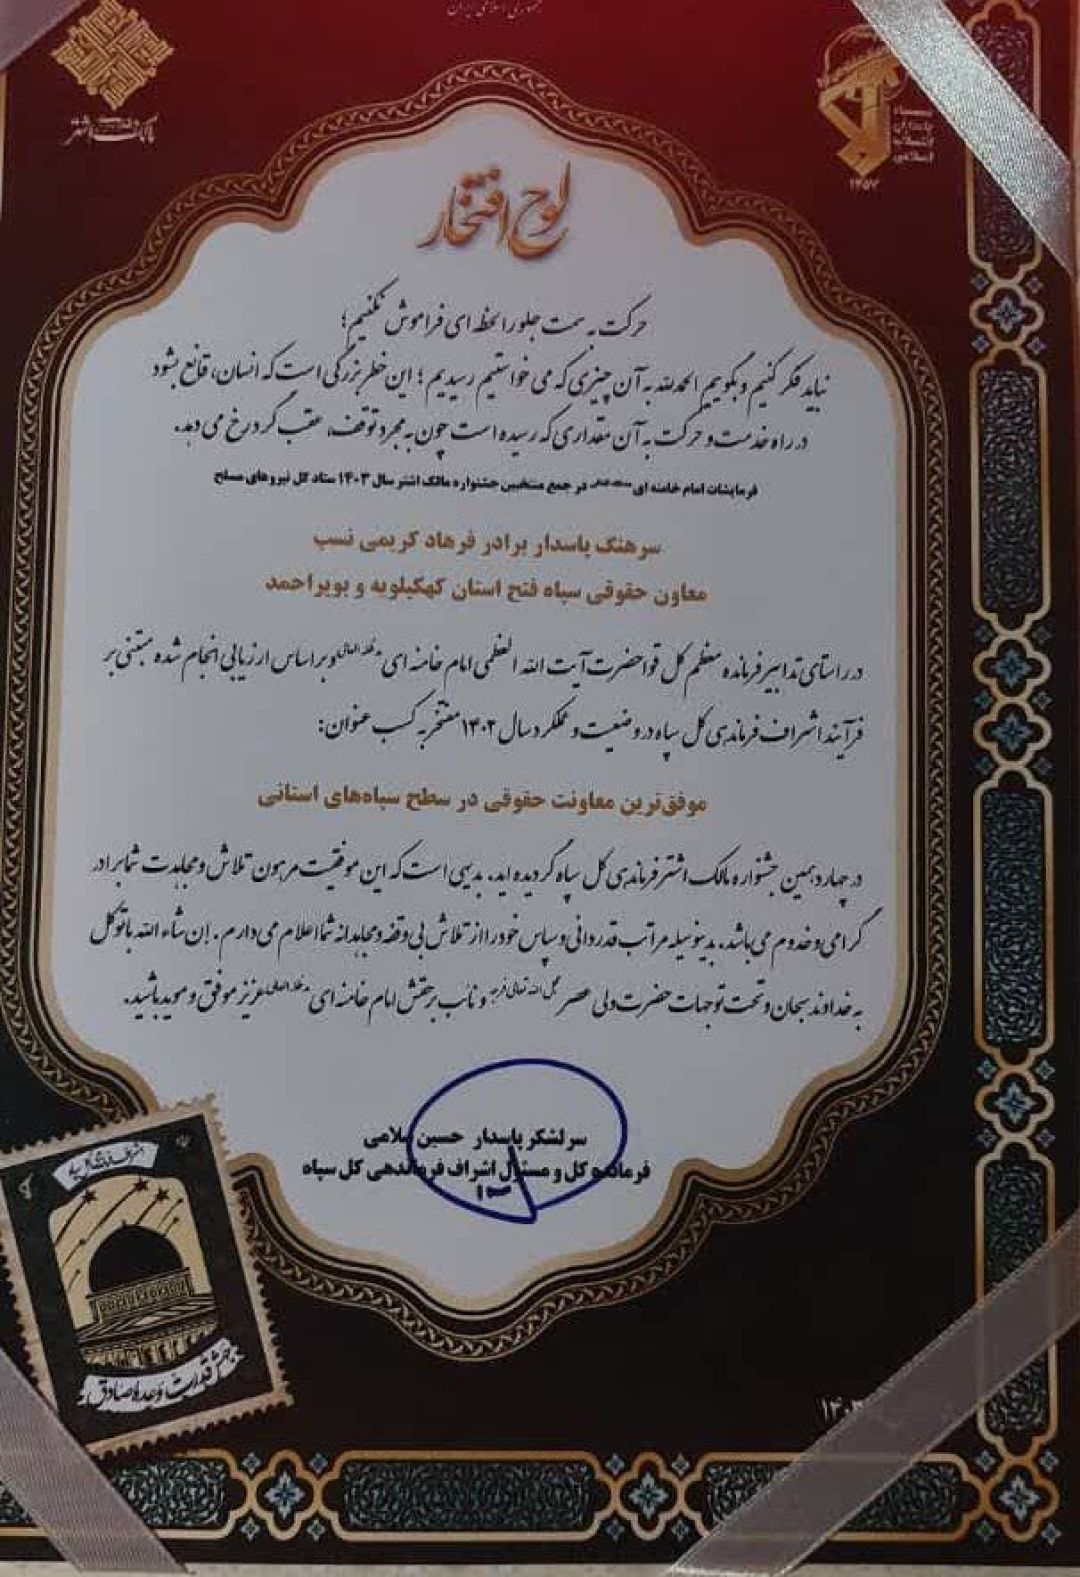 جمهوری اسلامی ایران
مالک اشتر
سپاه
پاسداران
انقلاب
اسلامی
۱۳۵۷
لوح افتخار
حرکت به سمت جلو را لحظه ای فراموش نکنیم؛
نباید فکر کنیم و بگوییم الحمدلله به آن چیزی که می خواستیم رسیدیم؛ این خطر بزرگی است که انسان، قانع بشود
در راه خدمت و حرکت به آن مقداری که رسیده است چون به مجرد توقف، عقب گرد رخ می دهد.
فرمایشات امام خامنه ای در جمع منتخبین جشنواره مالک اشتر سال ۱۴۰۳ ستاد کل نیروهای مسلح
سرهنگ پاسدار برادر فرهاد کریمی نسب
معاون حقوقی سپاه فتح استان کهکیلویه و بویراحمد
در راستای تدابیر فرمانده معظم کل قوا حضرت آیت الله العظمی امام خامنه ای مدظله العالی و بر اساس ارزیابی انجام شده مبتنی بر
فرآیند اشراف فرماندهی کل سپاه در وضعیت و عملکرد سال ۱۴۰۲ مفتخر به کسب عنوان:
موفق‌ترین معاونت حقوقی در سطح سپاه‌های استانی
در چهاردهمین جشنواره مالک اشتر فرماندهی کل سپاه گردیده اید. بدیهی است که این موفقیت مرهون تلاش و مجاهدت شما برادر
گرامی و خدوم می باشد. بدینوسیله مراتب قدردانی و سپاس خود را از تلاش بی وقفه و مجاهدانه شما اعلام می دارم. إن شاء الله با توکل
به خداوند سبحان و تحت توجهات حضرت ولی عصر عجل الله تعالی فرجه و نائب برحقش امام خامنه ای مدظله العالی عزیز موفق و موید باشید.
سرلشکر پاسدار حسین سلامی
فرمانده کل و مسئول اشراف فرماندهی کل سپاه
قدرت وعده صادق